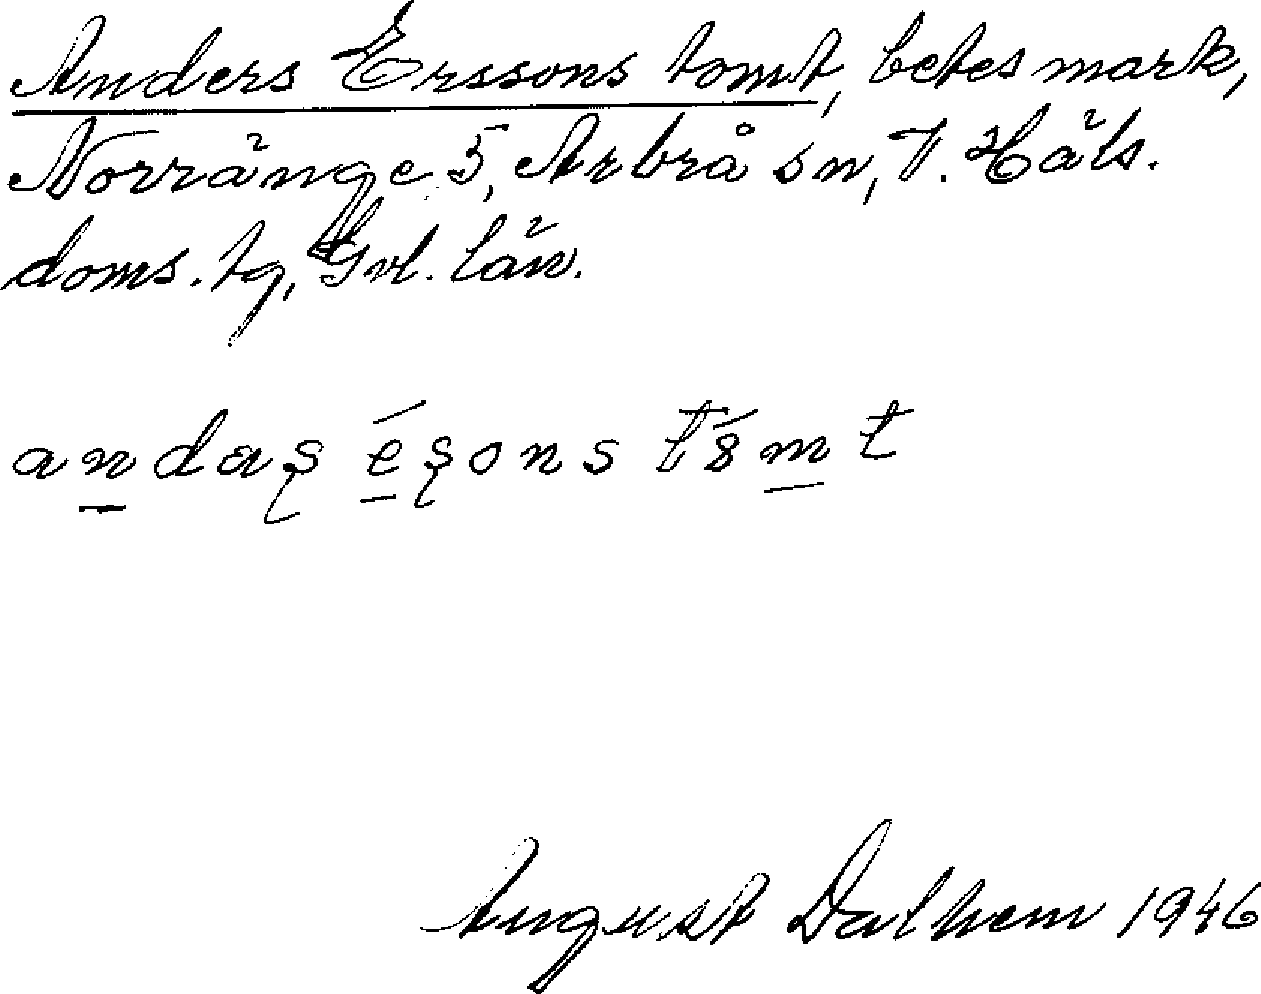 Anders Erssons tomt, betesmark,
Norränge 5, Arbrå sn, V. Häls.
doms. tg, Gvl. län.
August Dalhem 1946